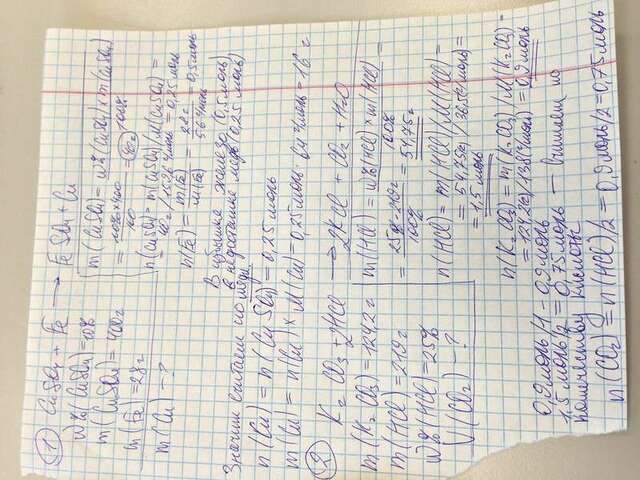 1 CuSO4 + Fe → FeSO4 + Cu
w%(CuSO4) = 10%
m(CuSO4) = 400г
m(Fe) = 28г
m(Cu) - ?
m(CuSO4) = w%(CuSO4) × m(CuSO4) / 100%
= 10% × 400 / 100 = 40г
n(CuSO4) = m(CuSO4)/M(CuSO4) =
= 40г / 159,6 г/моль = 0,25 моль
n(Fe) = m(Fe) / M(Fe) = 28г / 56 г/моль = 0,5 моль
В избытке железо (0,5 моль)
в недостатке медь (0,25 моль)
Значит считаем по меди
n(Cu) = n(CuSO4) = 0,25 моль
m(Cu) = n(Cu) × M(Cu) = 0,25 моль · 64 г/моль = 16 г
2 K2CO3 + 2HCl → 2KCl + CO2 + H2O
m(K2CO3) = 124,2г
m(HCl) = 219г
w%(HCl) = 25%
V(CO2) - ?
m(HCl) = w%(HCl) × m(HCl) / 100% =
= 25% · 219г / 100% = 54,75г
n(HCl) = m(HCl)/M(HCl) =
= 54,75(г) / 36,5(г/моль) =
= 1,5 моль
n(K2CO3) = m(K2CO3)/M(K2CO3) =
= 124,2(г)/138(г/моль) = 0,9 моль
0,9 моль/1 - 0,9 моль
1,5 моль/2 = 0,75 моль — Считаем по
количеству кислоты
n(CO2) = n(HCl)/2 = 0,9 моль/2 = 0,75 моль